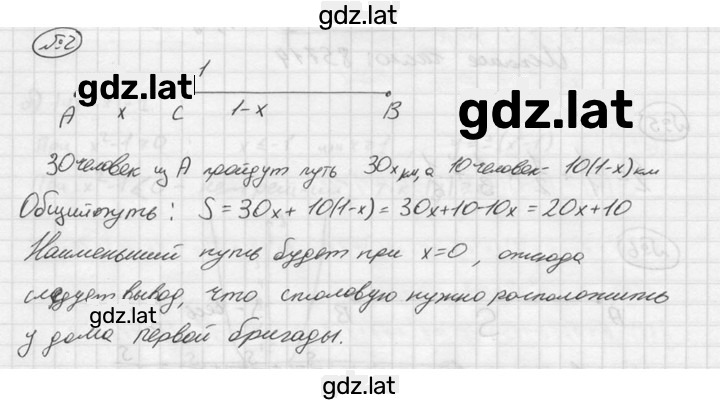 gdz.lat
№2
1
gdz.lat
A x C 1-x B
gdz.lat
30 человек из A пройдут путь 30x км, а 10 человек - 10(1-x) км
Общий путь: S = 30x + 10(1-x) = 30x+10-10x = 20x+10
Наименьший путь будет при x=0, отсюда
следует вывод, что столовую нужно расположить
gdz.lat
у дома первой бригады.
gdz.lat